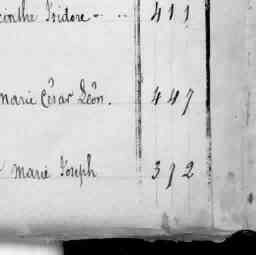 cinthe Isidore - .. 411
Marie César Léon. 447
Marie Joseph 392